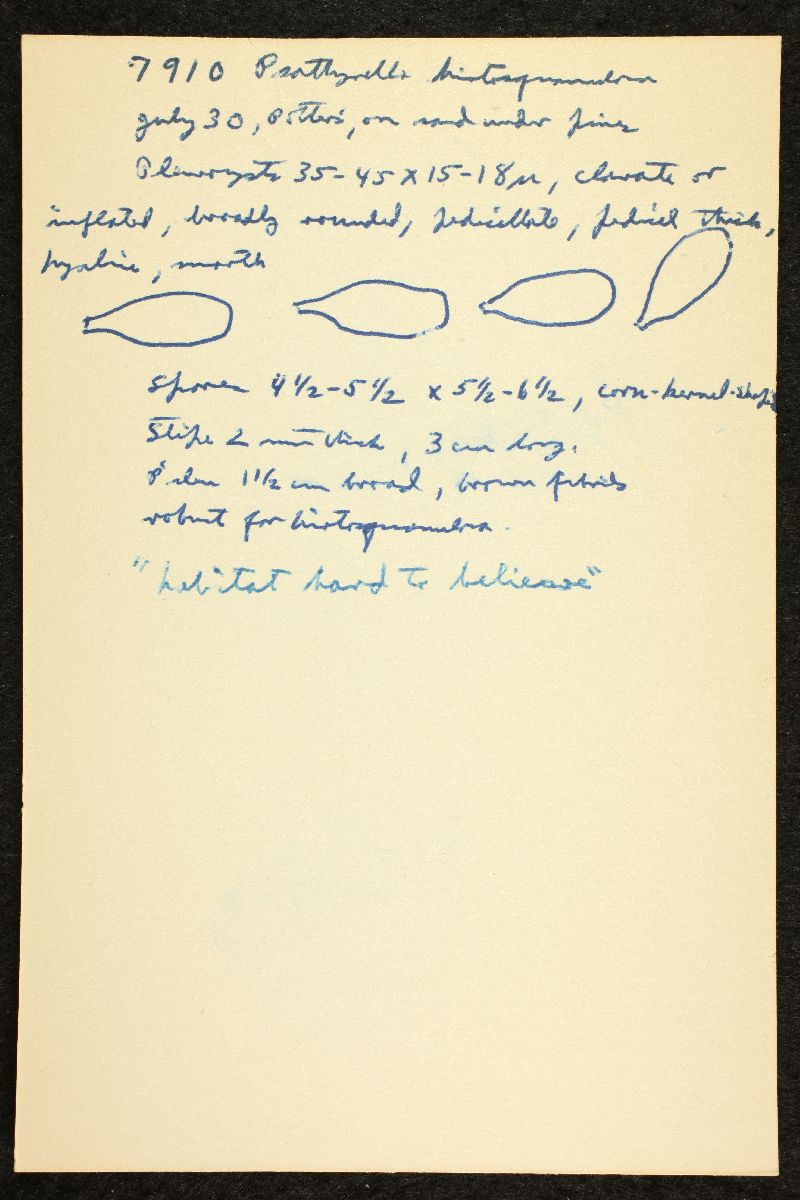 7910 Psathyrella hirtosquamulosa
July 30, Potters', on sand under pines
Pleurocysts 35-45 x 15-18µ, clavate or
inflated, broadly rounded, pedicellate, pedicel thick,
hyaline, smooth
Spores 4 1/2-5 1/2 x 5 1/2-6 1/2, corn-kernel-shaped
Stipe 2 mm thick, 3 cm long.
Pileus 1 1/2 cm broad, brown fibrils
robust for hirtosquamulosa.
"habitat hard to believe"